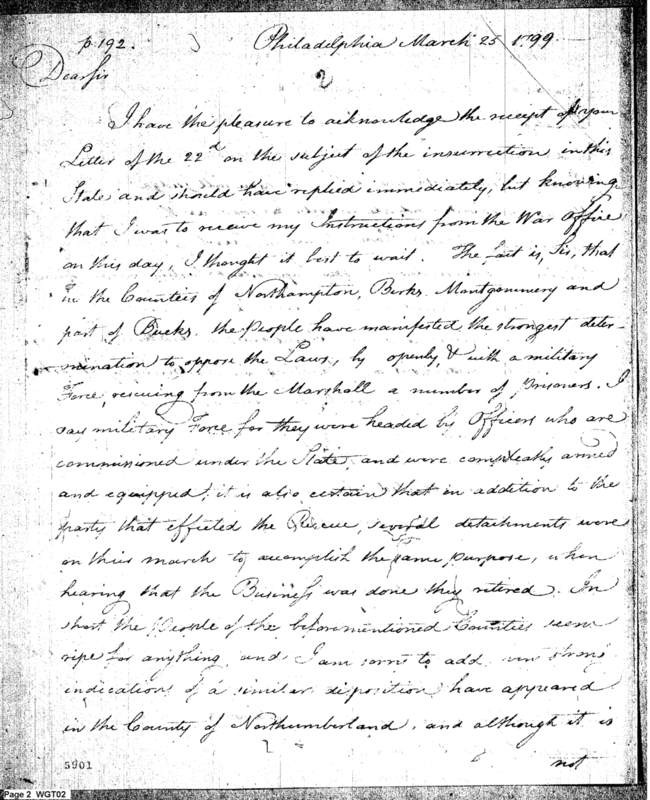 p. 192.
Philadelphia March 25 1799
Dear Sir
2
I have the pleasure to acknowledge the receipt of your
Letter of the 22d on the subject of the insurrection in this
State and should have replied immediately, but knowing
that I was to receive my Instructions from the War Office
on this day, I thought it best to wait. The fact is, Sir, that
in the Counties of Northampton, Berks, Montgommery and
part of Bucks, the People have manifested the strongest deter-
mination to oppose the Laws, by openly & with a military
Force, rescuing from the Marshall a number of Prisoners. I
say military Force for they were headed by Officers who are
commissioned under the State, and were compleatly armed
and equipped; it is also certain that in addition to the
party that effected the Rescue, several detachments were
on their march to accomplish the same purpose, when
hearing that the Business was done they retired. In
short the People of the beforementioned Counties seem
ripe for anything, and I am sorry to add, strong
indications of a similar disposition have appeared
in the County of Northumberland, and although it is
not
5901
Page 2 WGT02